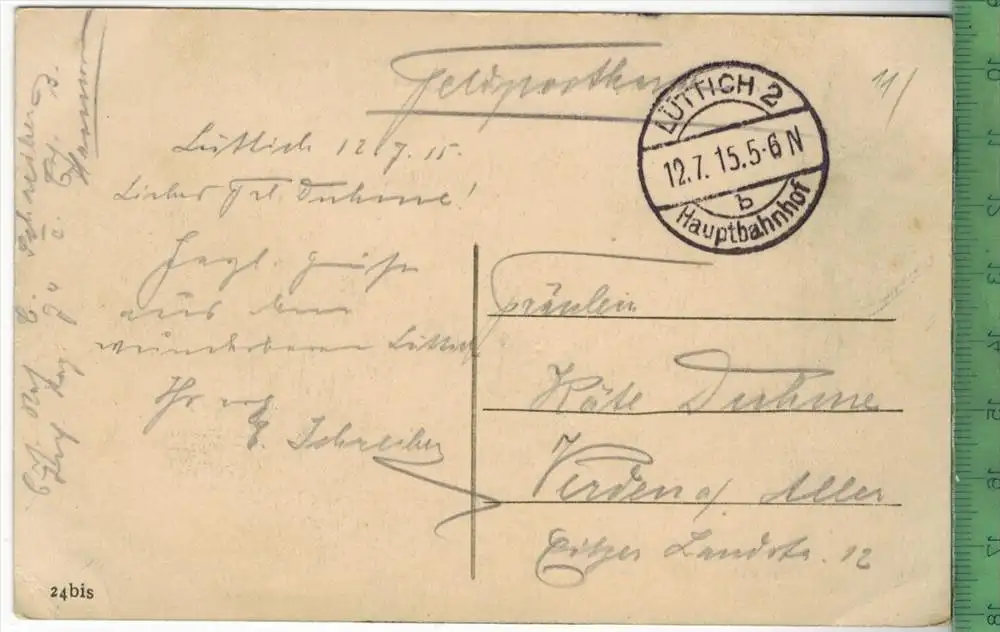 Feldpostkarte
LÜTTICH 2
12.7.15.5-6 N
b
Hauptbahnhof
11/
Lüttich 12.7.15.
Liebes Frl. Duhme!
Herzl. Grüße
aus dem
wunderbaren Lüttich
Ihr
E. Schreiber
Fräulein
Käte Duhme
Verden a/ Aller
Eitzer Landstr. 12
E. Schreiber
Hannover
24bis
10
11
12
13
14
15
16
17
18